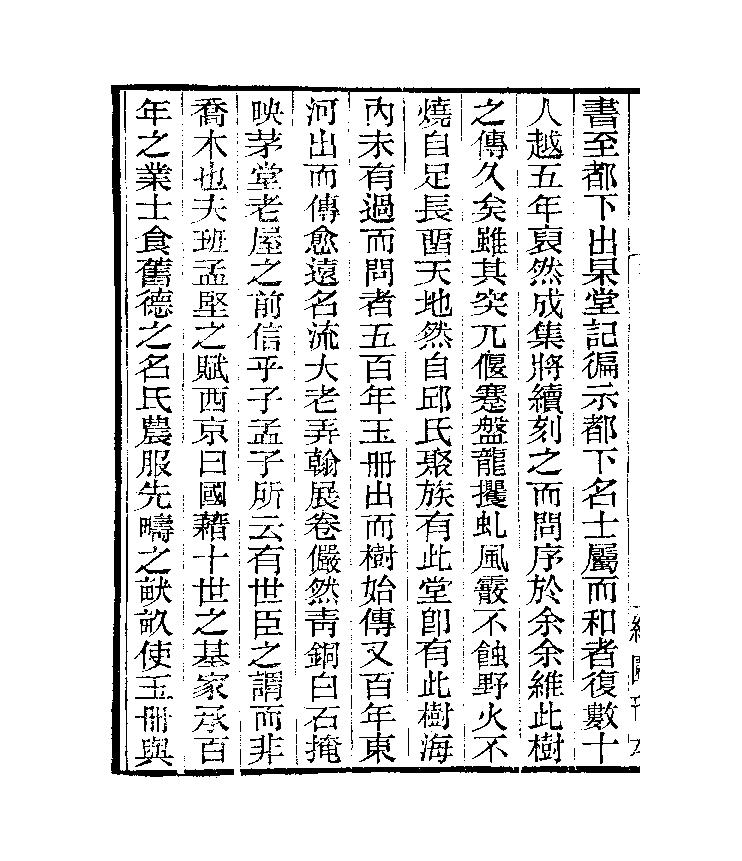 書至都下出杲堂記徧示都下名士屬而和者復數十
人越五年裒然成集將續刻之而問序於余余維此樹
之傳久矣雖其突兀偃蹇盤龍攫虬風霰不蝕野火不
燒自足長畱天地然自邱氏聚族有此堂卽有此樹海
內未有過而問者五百年玉冊出而樹始傳又百年東
河出而傳愈遠名流大老弄翰展卷儼然靑銅白石掩
映茅堂老屋之前信乎子孟子所云有世臣之謂而非
喬木也夫班孟堅之賦西京曰國藉十世之基家承百
年之業士食舊德之名氏農服先疇之畎畝使玉冊與